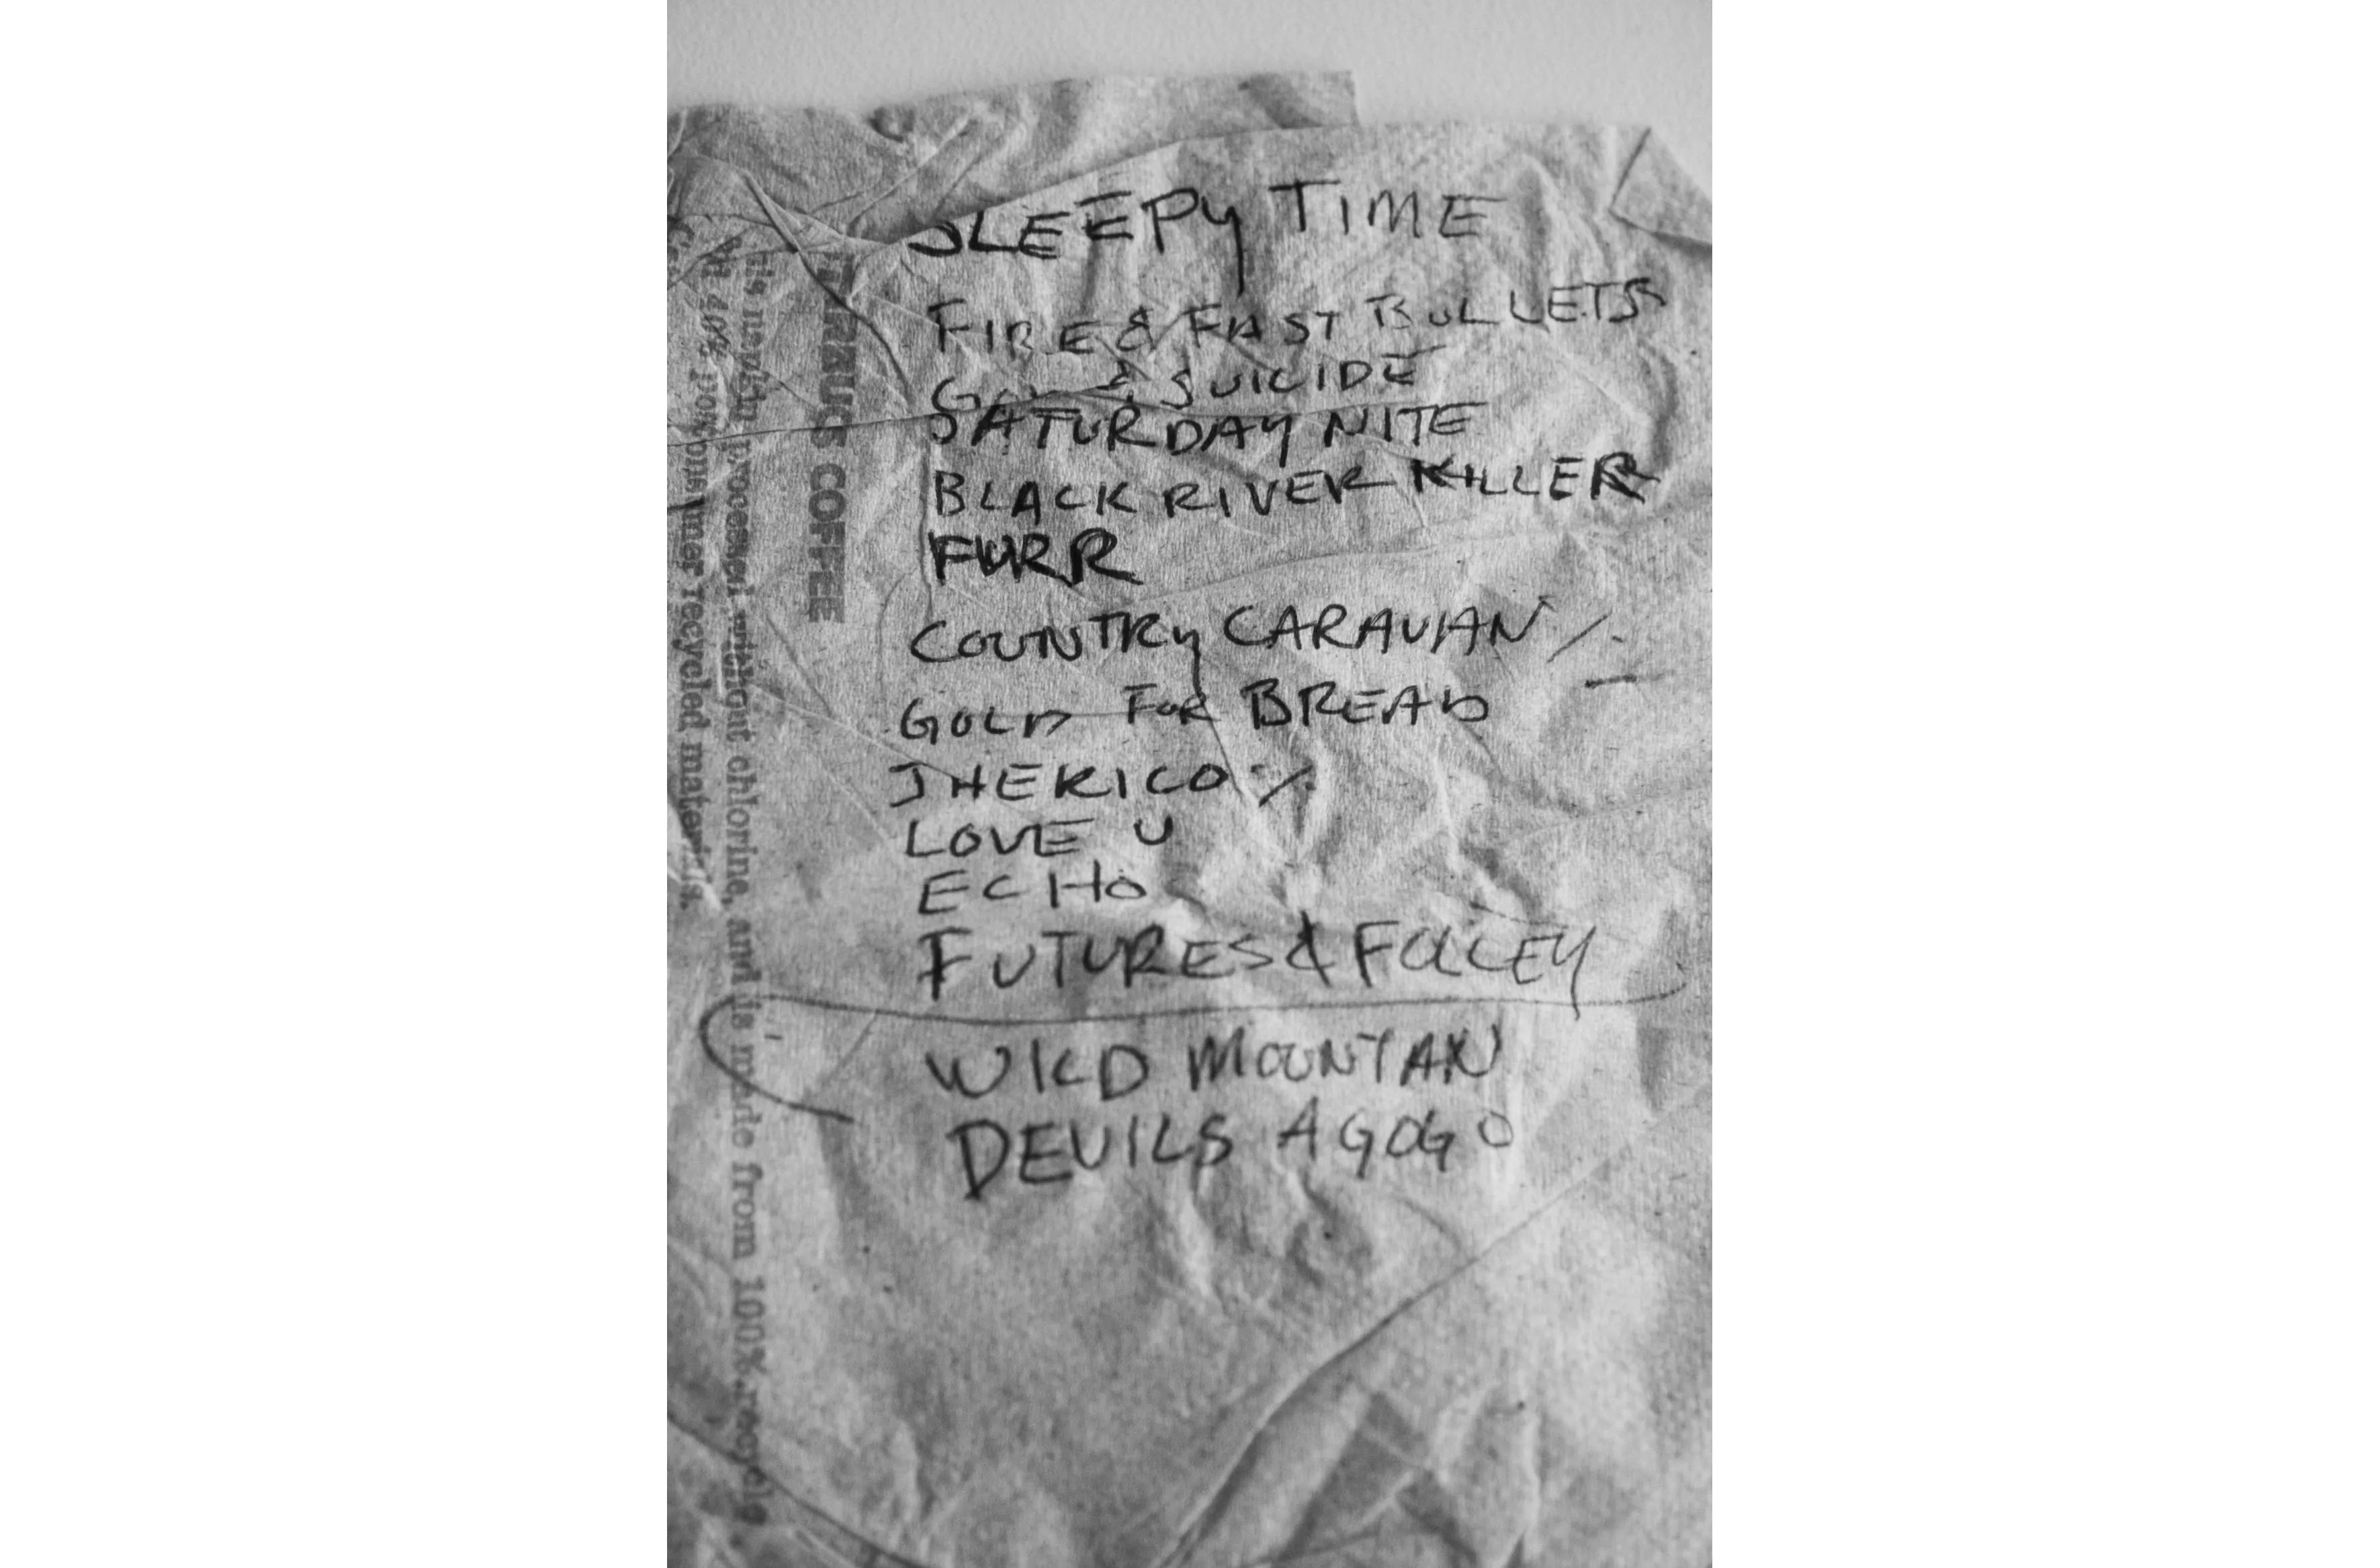 SLEEPY TIME
FIRE & FAST BULLETS
& SUICIDE
SATURDAY NITE
BLACK RIVER KILLER
FURR
COUNTRY CARAVAN
GOLD FOR BREAD
JHERICO
LOVE U
ECHO
FUTURES & FOLLEY
WILD MOUNTAN
DEVILS AGOGO
STARBUCKS COFFEE
This napkin processed without chlorine, and is made from 100% recycle
40% recycled materials.